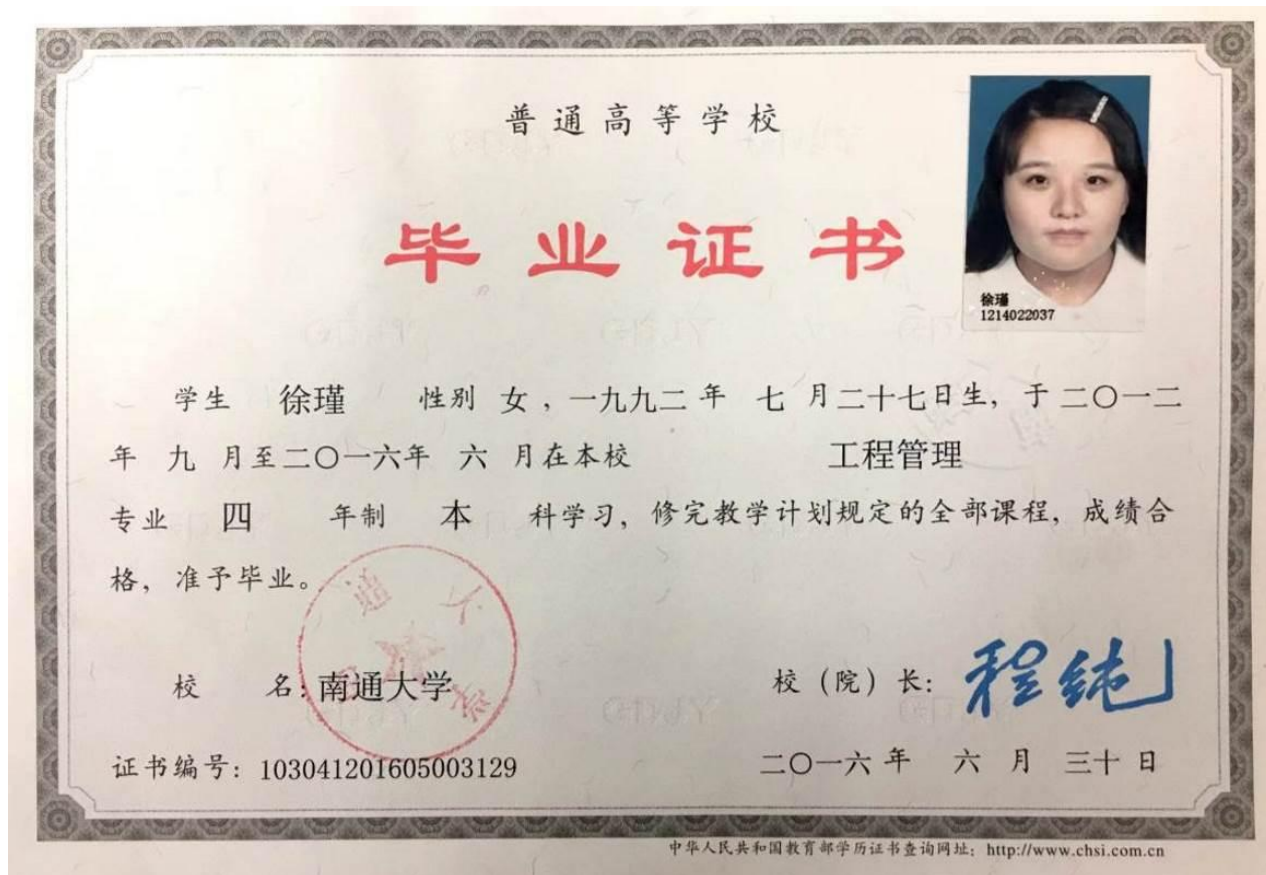 普通高等学校
毕业证书
徐瑾
1214022037
学生 徐瑾 性别 女，一九九二年 七 月二十七日生，于二〇一二
年 九 月至二〇一六年 六 月在本校 工程管理
专业 四 年制 本 科学习，修完教学计划规定的全部课程，成绩合
格，准予毕业。
校 名：南通大学
校（院）长：程纯
证书编号：103041201605003129
二〇一六年 六 月 三十 日
中华人民共和国教育部学历证书查询网址：http://www.chsi.com.cn